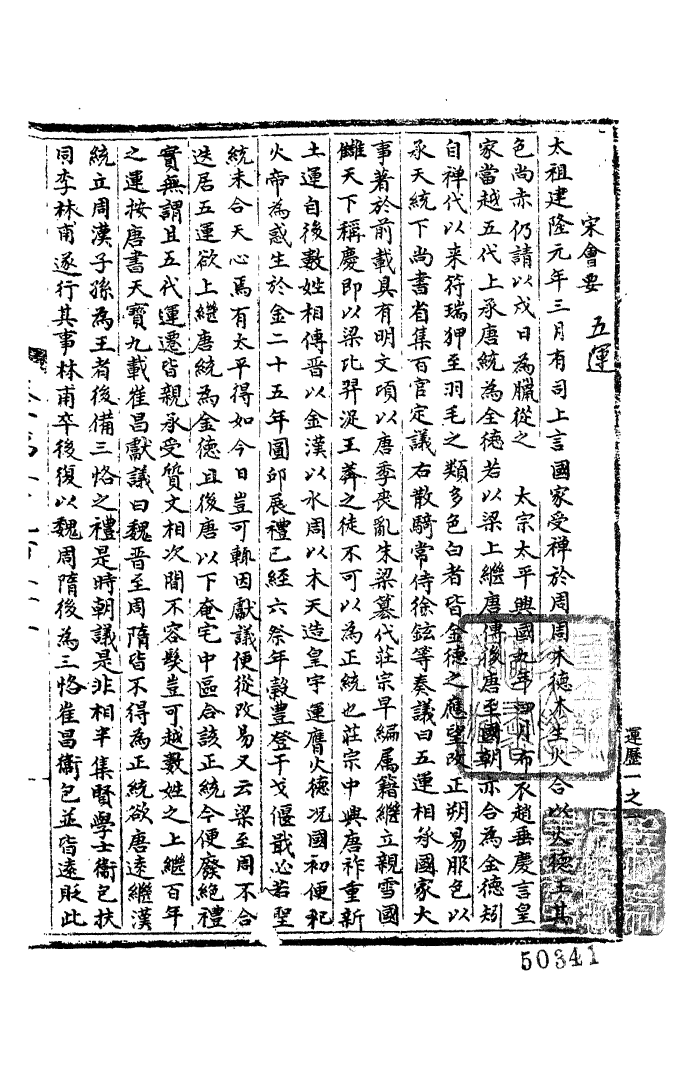 宋會要 五運
太祖建隆元年三月有司上言國家受禪於周周木德木生火合以火德王其
色尚赤仍請以戌日為臘從之 太宗太平興國九年四月布衣趙垂慶言皇
家當越五代上承唐統為金德若以梁上繼唐傳後唐至國朝亦合為金德矧
自禪代以來符瑞狎至羽毛之類多色白者皆金德之應望改正朔易服色以
承天統下尚書省集百官定議右散騎常侍徐鉉等奏議曰五運相承國家大
事著於前載具有明文頃以唐季喪亂朱梁篡代莊宗早編属籍繼立親雪國
讎天下稱慶即以梁比羿浞王莽之徒不可以為正統也莊宗中興唐祚重新
土運自後數姓相傳晉以金漢以水周以木天造皇宇運膺火德况國初便祀
火帝為感生於金二十五年圜邱展禮已經六祭年穀豊登干戈偃戢必若聖
統未合天心焉有太平得如今日豈可輒因獻議便從改易又云梁至周不合
迭居五運欲上繼唐統為金德且後唐以下奄宅中區合該正統今便廢絕禮
實無謂且五代運遷皆親承受質文相次間不容髮豈可越數姓之上繼百年
之運按唐書天寶九載崔昌獻議曰魏晉至周隋皆不得為正統欲唐遠繼漢
統立周漢子孫為王者後備三恪之禮是時朝議是非相半集賢學士衞包扶
同李林甫遂行其事林甫卒後復以魏周隋後為三恪崔昌衞包並皆遠貶此
運歷一之
50341